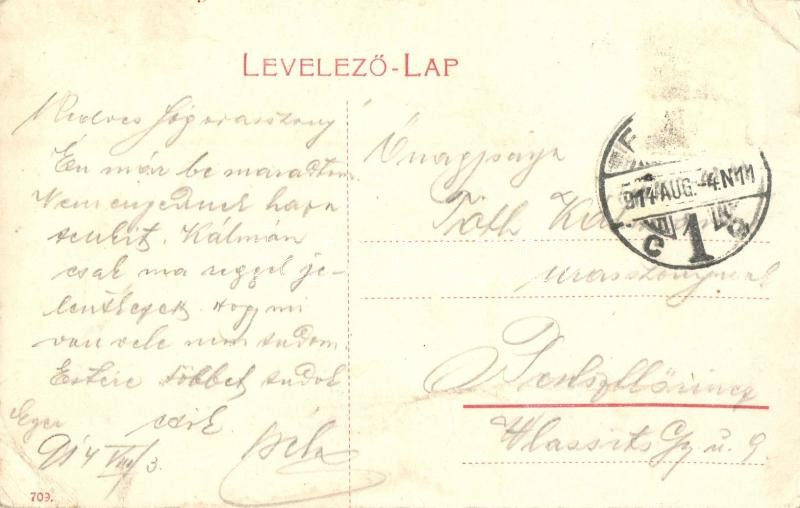 LEVELEZŐ-LAP
Kedves Sógorasszony
Én már be maradtam
Nem engednek haza
senkit. Kálmán
csak ma reggel je-
lentkezett. Hogy mi
van vele nem tudom.
Estére többet tudok
Eger
914 VIII/3.
Béla
Őnagysága
Tóth Kálmán
uraszonynak
Pestszentlőrincz
Wlassits Gy u. 9.
914 AUG -4 N11
1
709.